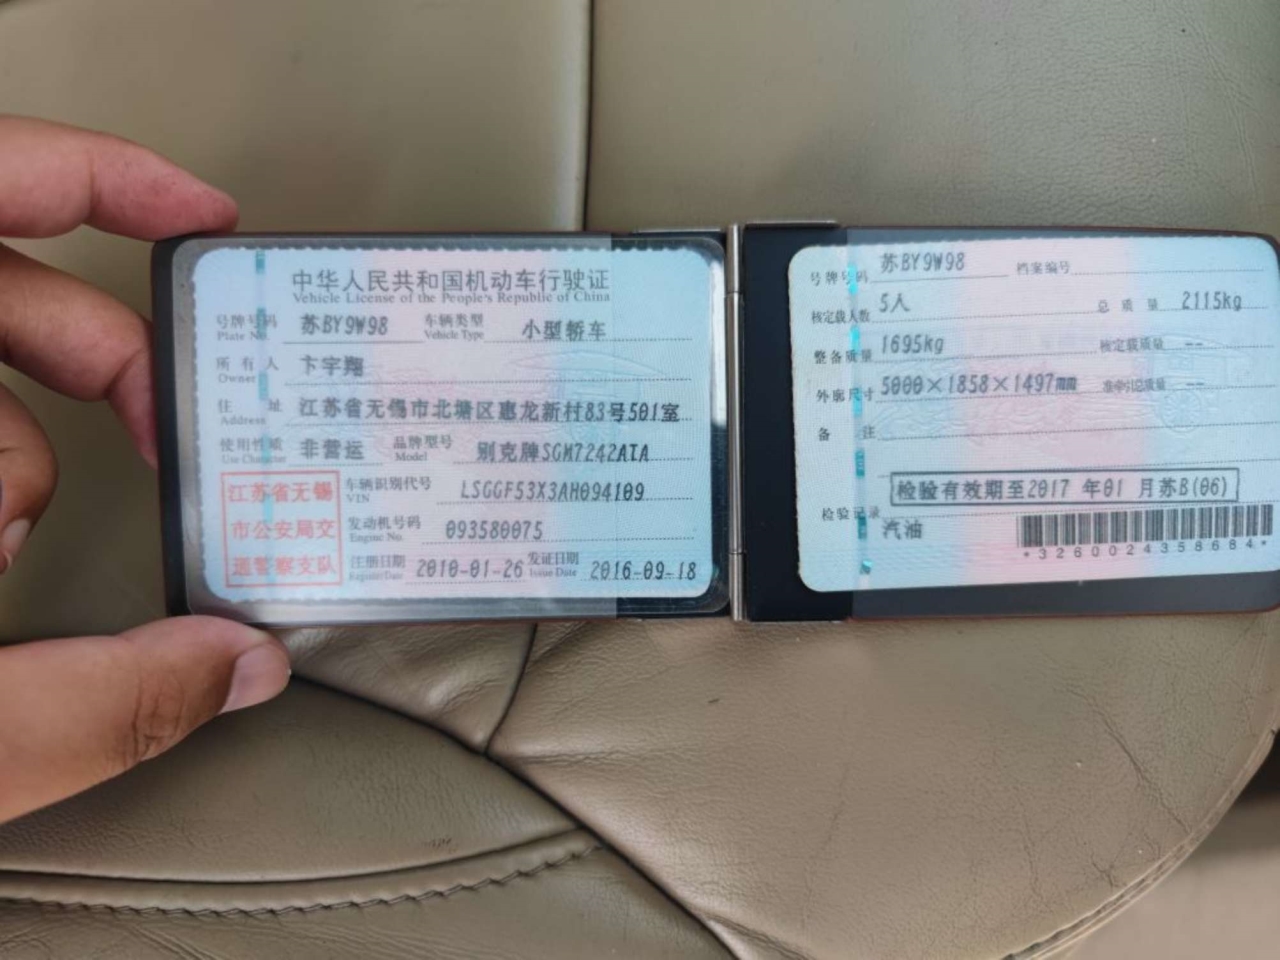 中华人民共和国机动车行驶证
Vehicle License of the People's Republic of China
号牌号码 苏BY9W98 车辆类型 小型轿车
Plate No. Vehicle Type
所有人 卞宇翔
Owner
住址 江苏省无锡市北塘区惠龙新村83号501室
Address
使用性质 非营运 品牌型号 别克牌SGM7242ATA
Use Character Model
江苏省无锡
市公安局交
通警察支队
车辆识别代号 LSGGF53X3AH094109
VIN
发动机号码 093580075
Engine No.
注册日期 2010-01-26 发证日期 2016-09-18
Register Date Issue Date
号牌号码 苏BY9W98 档案编号
核定载人数 5人 总质量 2115kg
整备质量 1695kg 核定载质量 --
外廓尺寸 5000×1858×1497mm 准牵引总质量 --
备注
检验有效期至2017 年01 月苏B(06)
检验记录
汽油
*3260024358684*